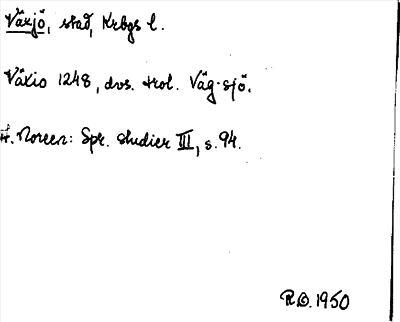 Växjö, stad, Krbgs l.
Växio 1248, dvs. trol. Väg-sjö.
A. Noreen: Spr. studier III, s. 94.
R.O. 1950